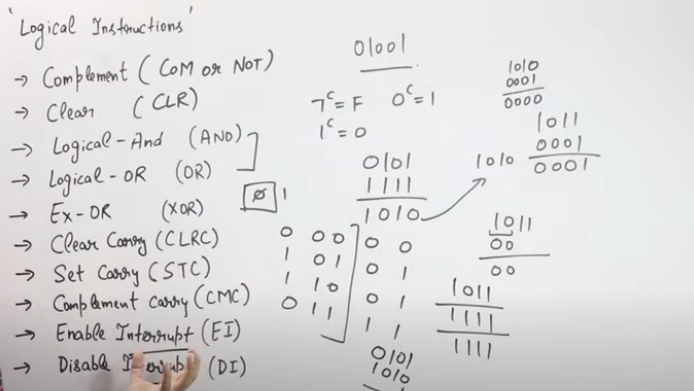 'Logical Instructions'
→ Complement (COM or NOT)
→ Clear (CLR)
→ Logical-And (AND)
→ Logical-OR (OR)
→ Ex-OR (XOR)
→ Clear Carry (CLRC)
→ Set Carry (STC)
→ Complement Carry (CMC)
→ Enable Interrupt (EI)
→ Disable (DI)
01001
7ᶜ=F 0ᶜ=1
1ᶜ=0
0101
1111
1010
0 1
0 00
1 01
1 10
0 11
0 0
0 1
0 1
1 1
0101
1010
1010
0001
0000
1011
1010 0001
0001
1011
00
00
1011
1111
1111